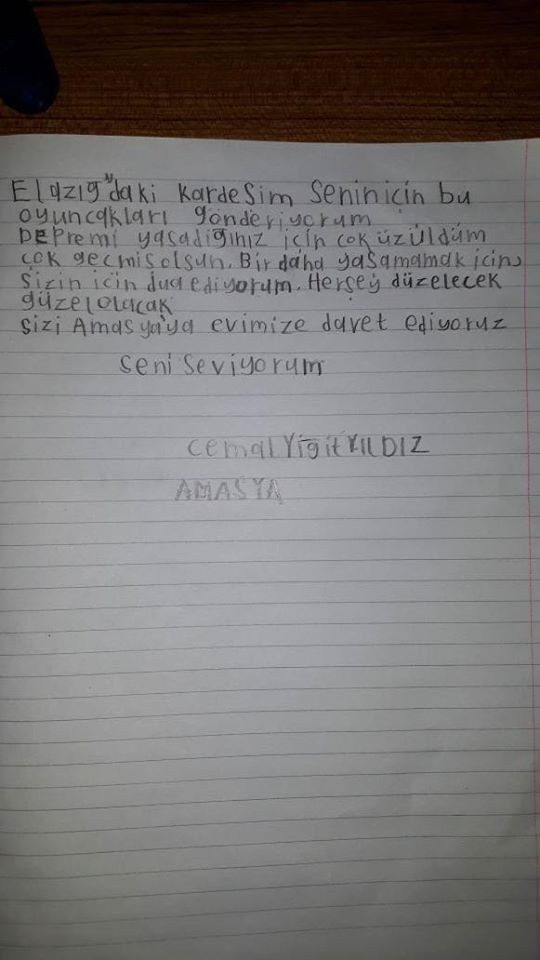 Elazığ'daki kardeşim senin için bu
oyuncakları gönderiyorum
DEPremi yaşadığınız için çok üzüldüm
çok geçmiş olsun. Bir daha yaşamamak için
sizin için dua ediyorum. Herşey düzelecek
güzel olacak
sizi Amasya'ya evimize davet ediyoruz
seni seviyorum
Cemal Yiğit YILDIZ
AMASYA